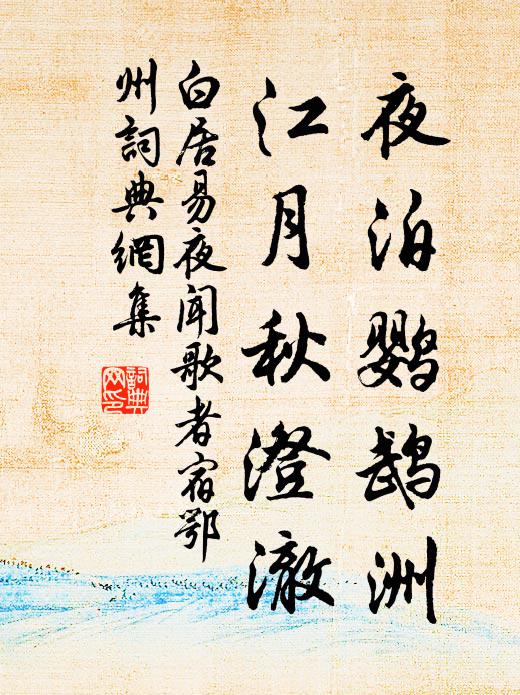 夜泊鹦鹉洲
江月秋澄澈
白居易夜闻歌者宿鄂
州詞典網集
詞典
网印